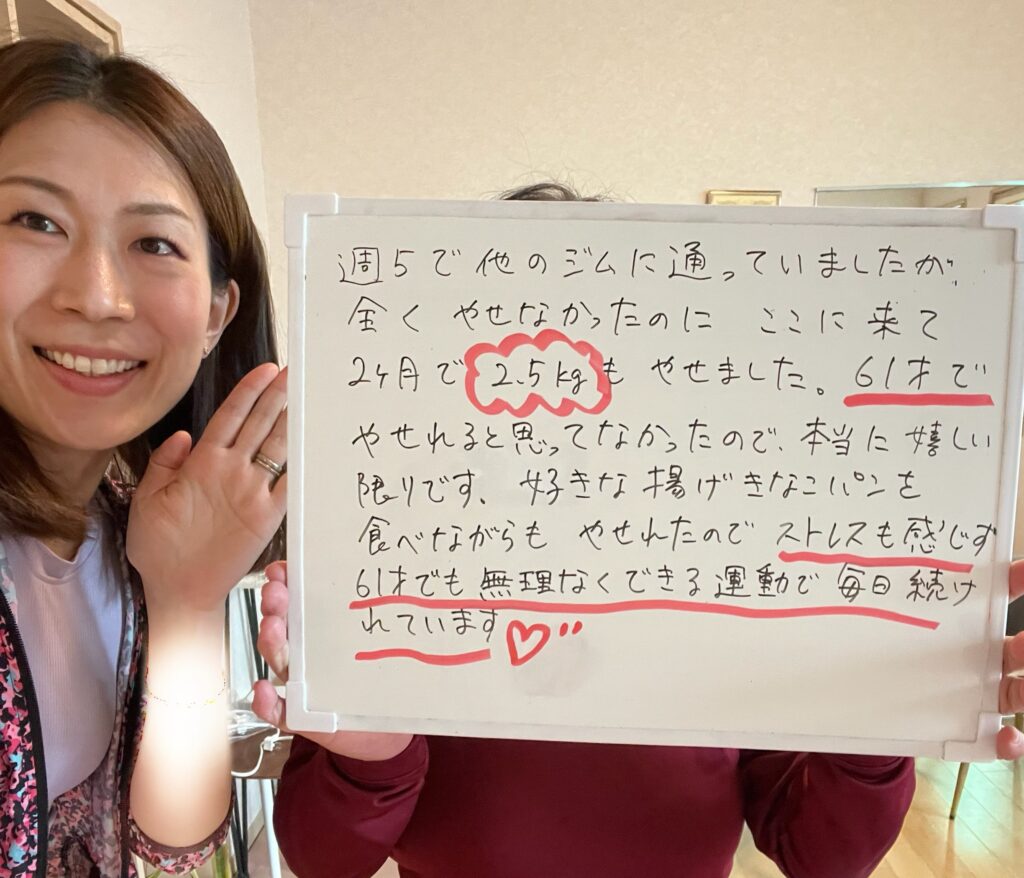 週5で他のジムに通っていましたが
全くやせなかったのに ここに来て
2ヶ月で2.5kgもやせました。61才で
やせれると思ってなかったので、本当に嬉しい
限りです、好きな揚げきなこパンを
食べながらも やせれたのでストレスも感じず
61才でも無理なくできる運動で毎日続け
れています♡